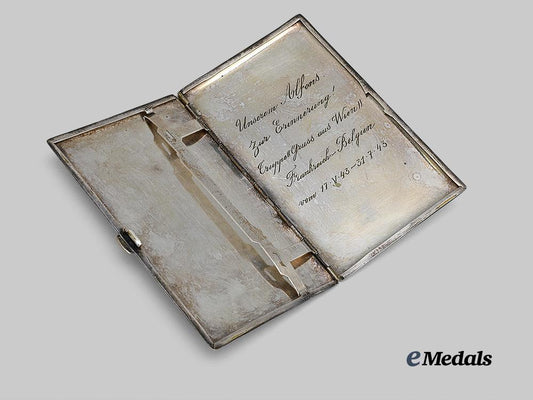 Unserem Alfons
zur Erinnerung!
Truppe „Gruss aus Wien“
Frankreich–Belgien
vom 17.V.43–31.7.43
eMedals